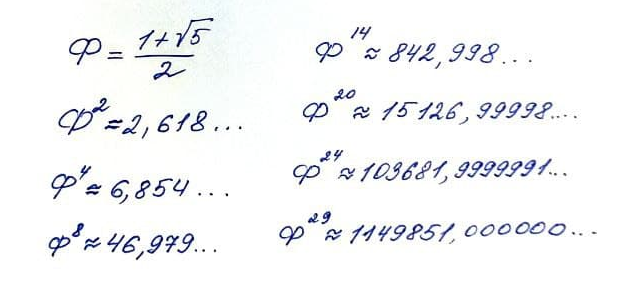 Φ = (1+√5)/2
Φ² ≈ 2,618...
Φ⁴ ≈ 6,854...
Φ⁸ ≈ 46,979...
Φ¹⁴ ≈ 842,998...
Φ²⁰ ≈ 15126,99998...
Φ²⁴ ≈ 103681,9999991...
Φ²⁹ ≈ 1149851,000000...